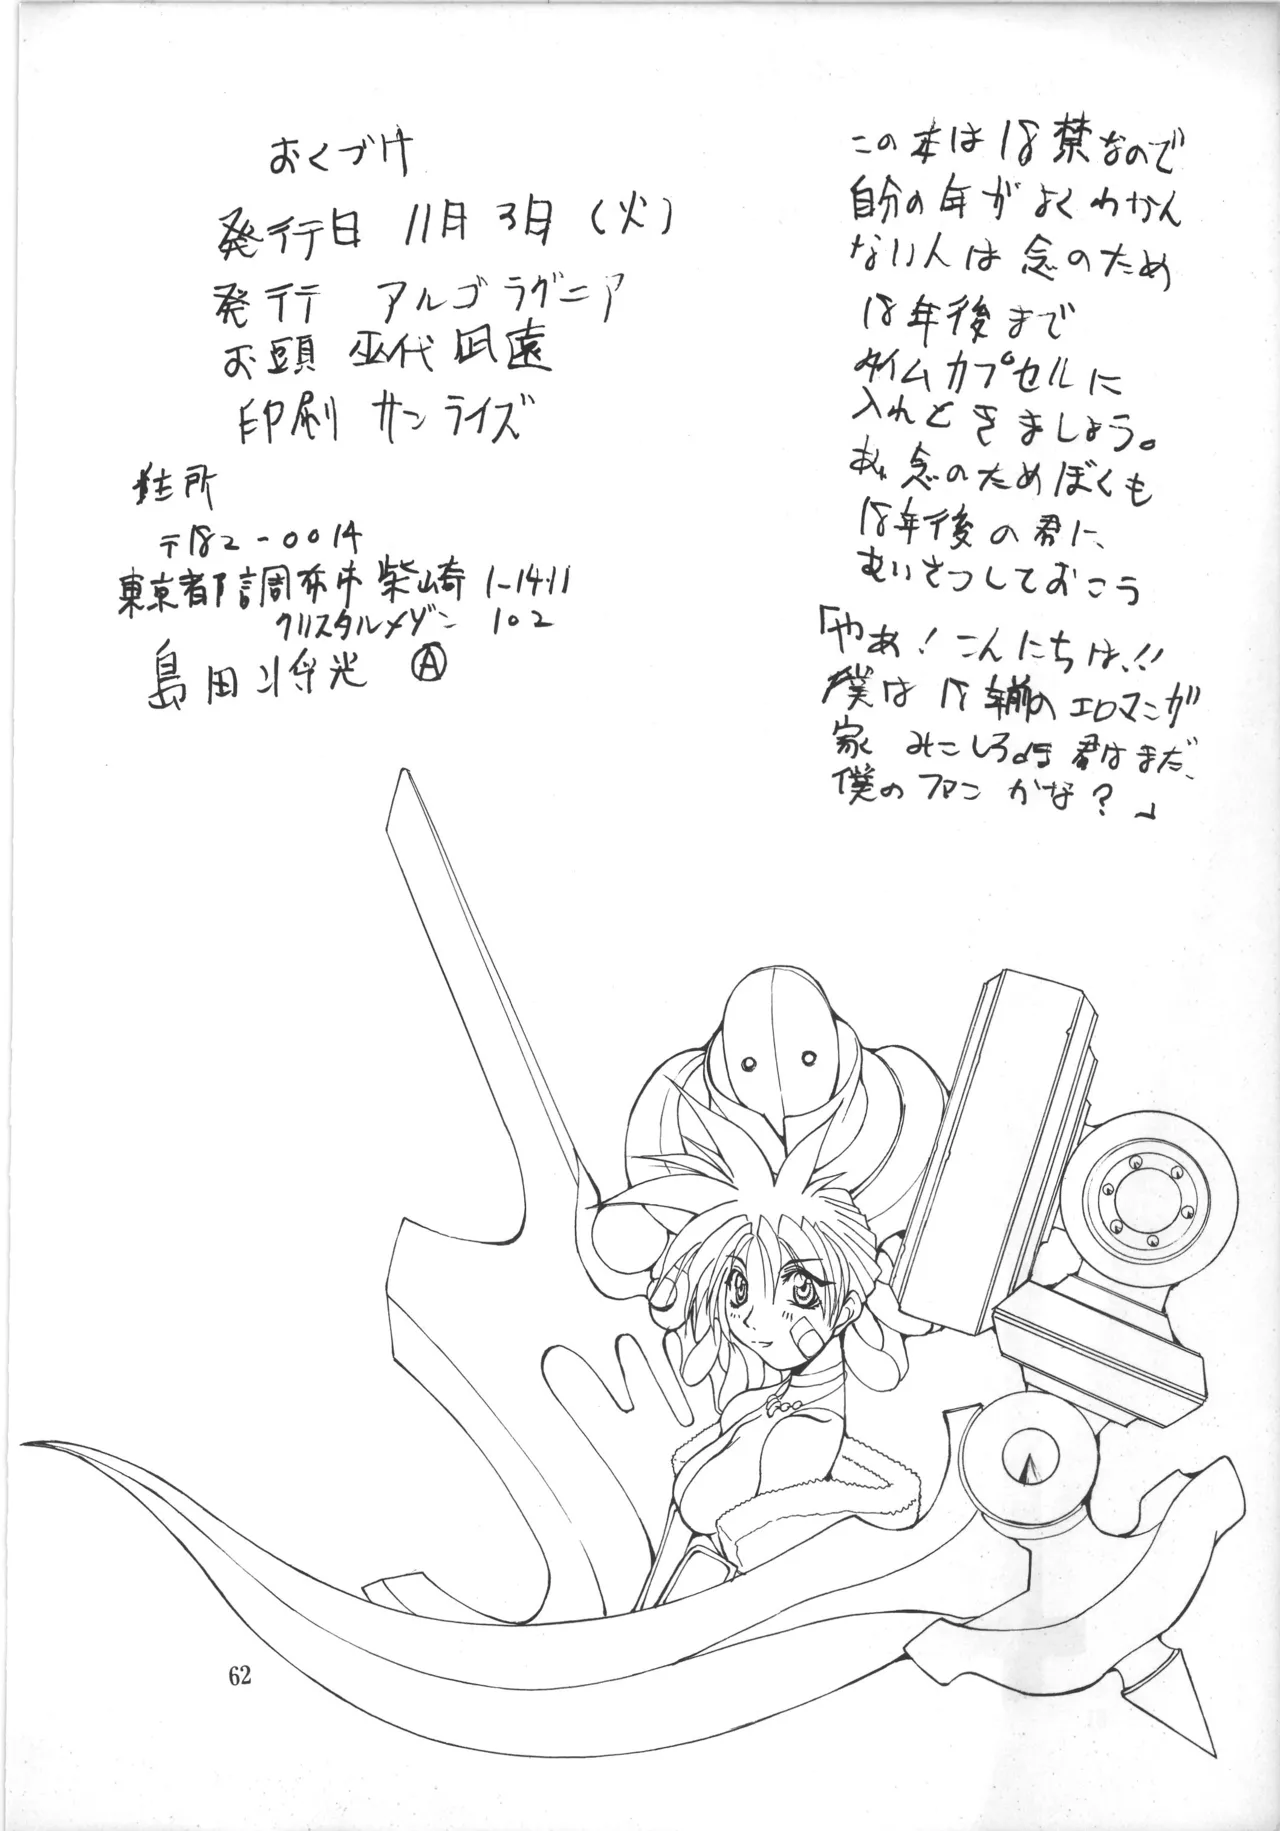 おくづけ
発行日 11月3日(火)
発行 アルゴラグニア
お頭 巫代凪遠
印刷 サンライズ
住所
〒182-0014
東京都調布市柴崎1-14-11
クリスタルメゾン 102
島田将光 Ⓐ
この本は18禁なので
自分の年がよくわかん
ない人は念のため
18年後まで
タイムカプセルに
入れときましょう。
あ、念のためぼくも
18年後の君に、
あいさつしておこう
「やあ!こんにちは!!
僕は18年前のエロマンガ
家 みこしろ 君はまだ、
僕のファンかな?」
62